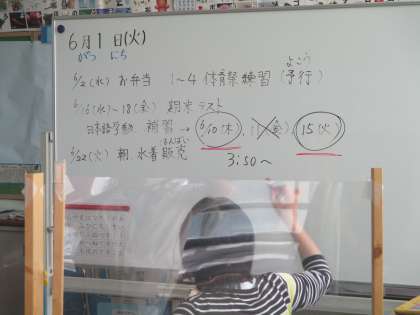 6月1日(火)
がつ にち
6/2(水) お弁当 1〜4 体育祭練習(予行)
よこう
6/16(水)〜18(金) 期末テスト
補習→ 6/10(木), 11(金), 15(火)
6/22(火) 朝, 水着販売
はんばい
3:50〜